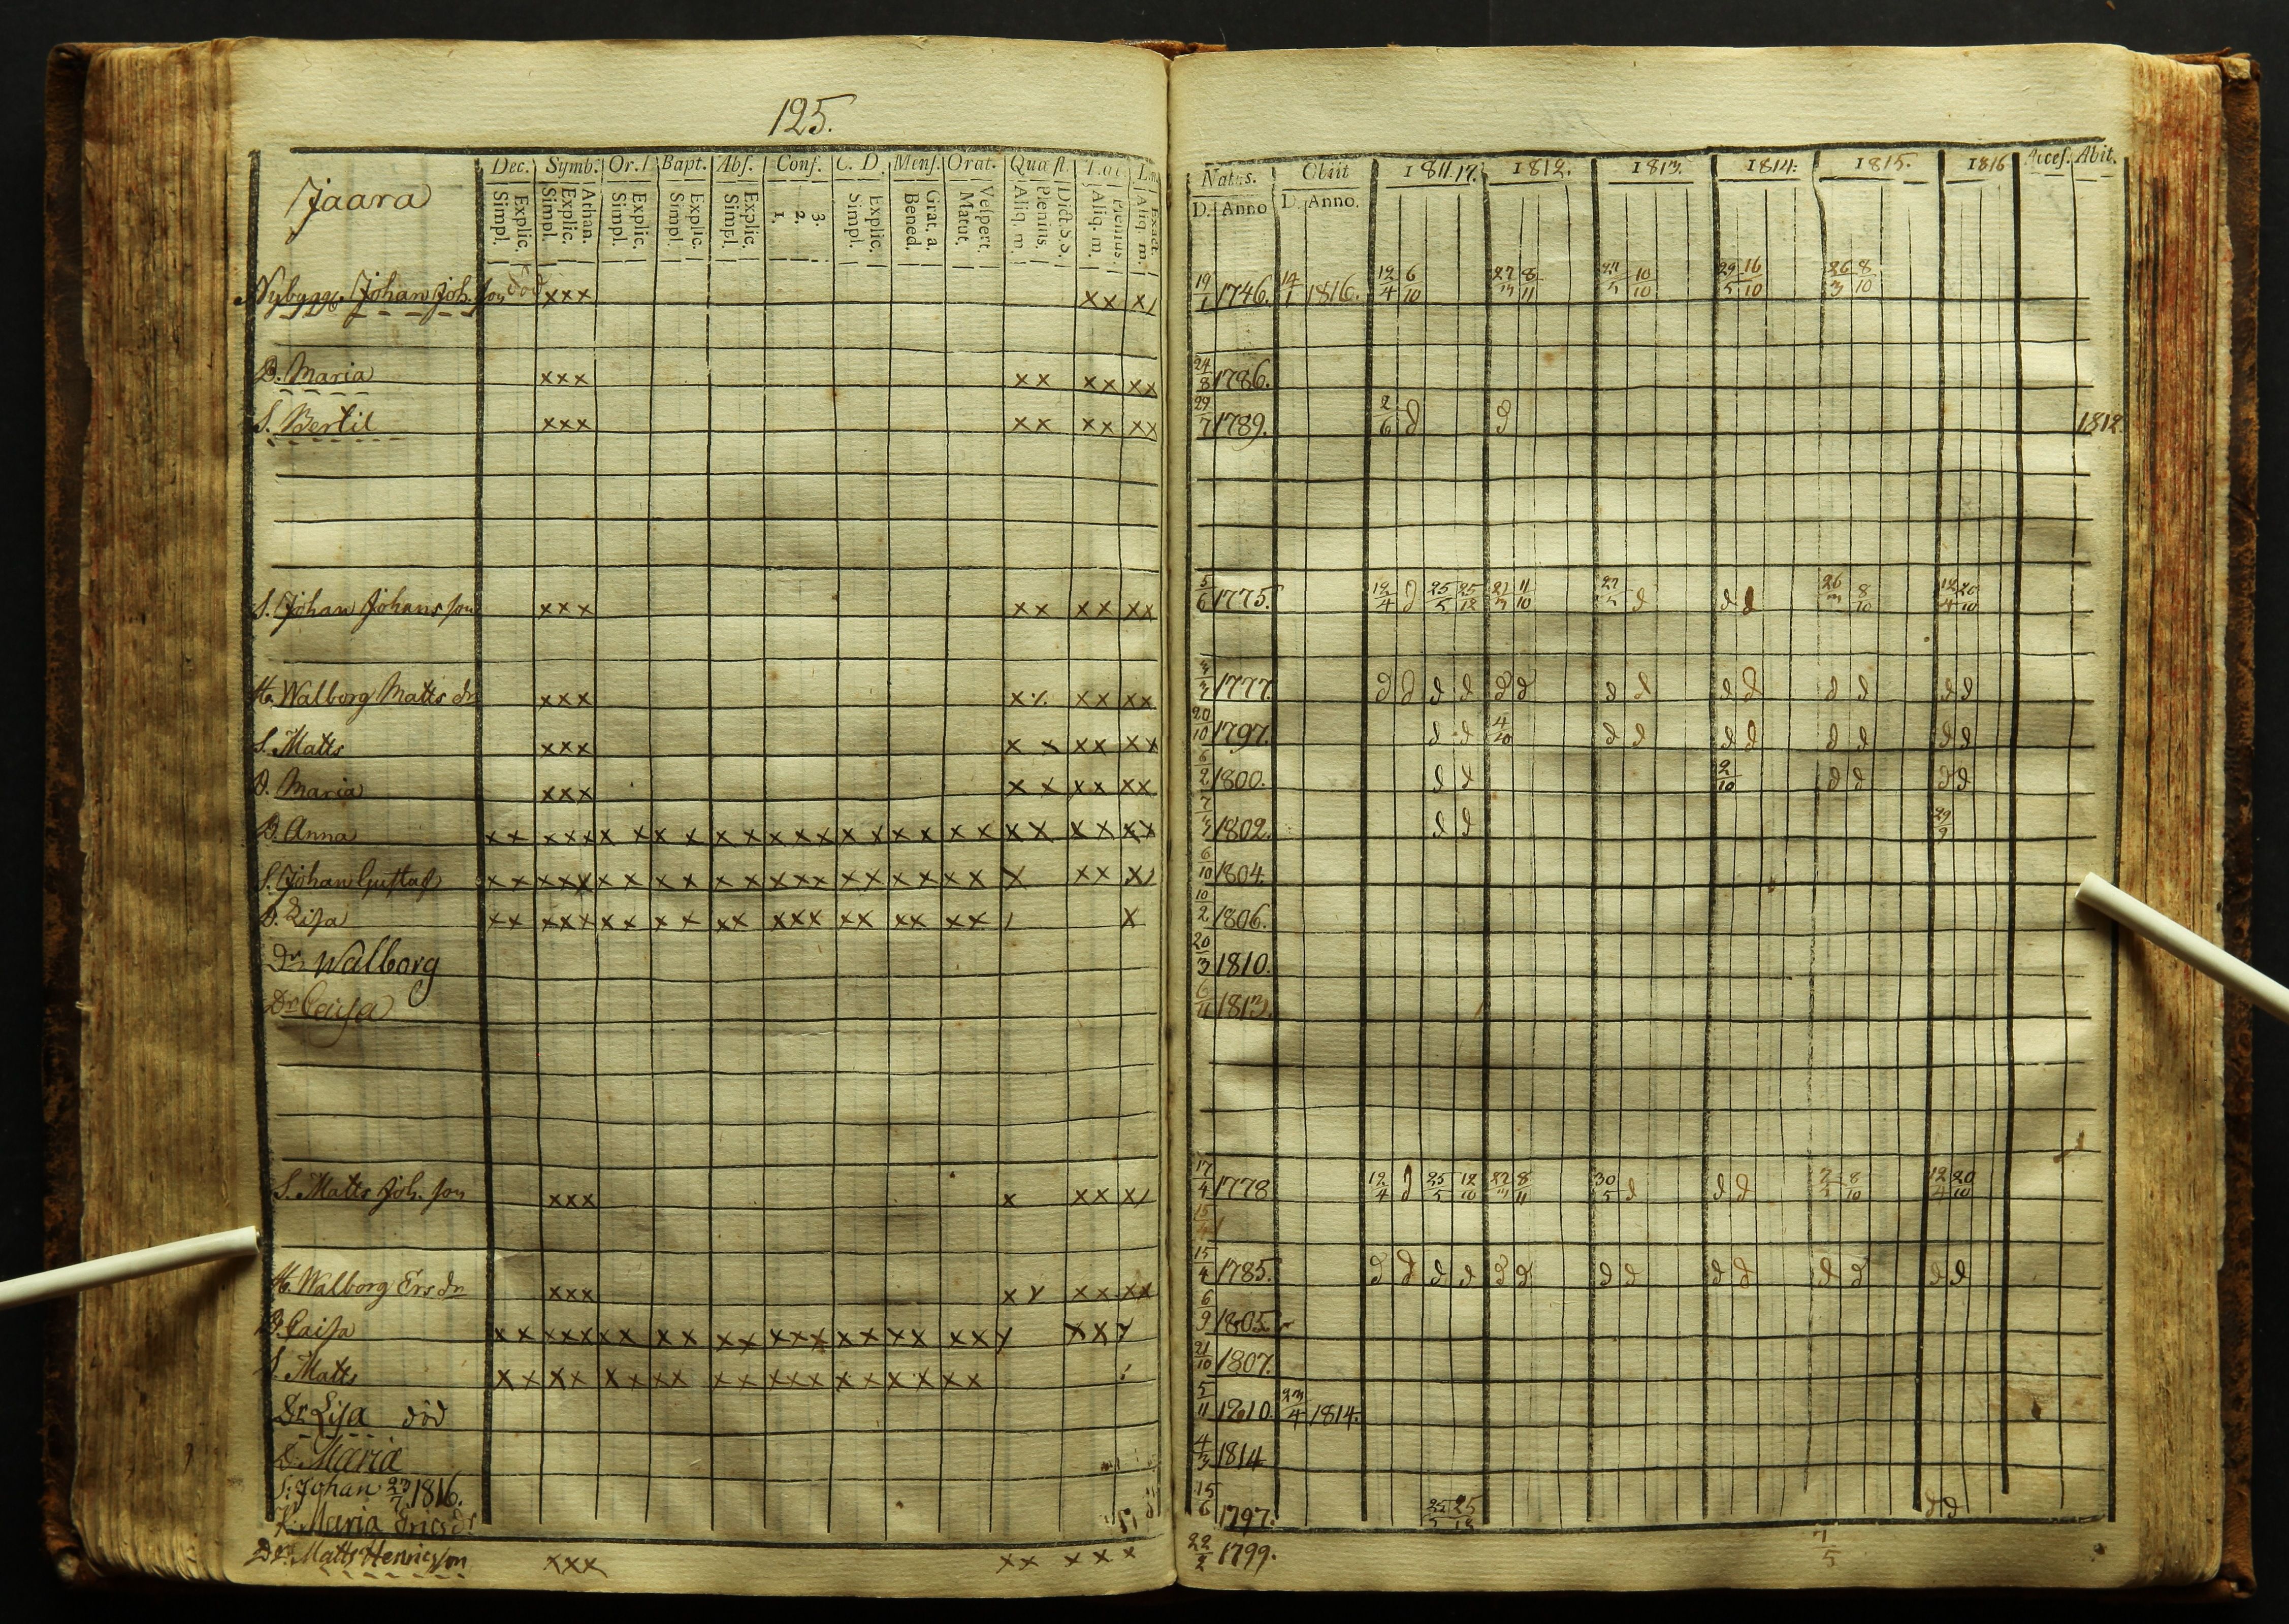 125.
Jaara
Dec. Symb. Or. Bapt. Abs. Conf. C. D. Mens. Orat. Quæst.
Explic. Simpl. Athan. Explic. Simpl. Explic. Simpl. Explic. Simpl. Explic. Simpl. 3. 2. 1. Explic. Simpl. Grat. a. Bened. Vespert. Matut. Dict. S.S. Plenius. Aliq. m. Plenius. Aliq. m. Exact. Aliq. m.
Natus. Obiit 1811.17. 1812. 1813. 1814. 1815. 1816 Acces. Abit.
D. Anno D. Anno.
Nybygg. Johan Joh. son död xxx xx x/ 19/1 1746. 14/1 1816. 12/4 6/10 27/3 8/11 10/10 29/5 16/10 26/3 8/10
D. Maria xxx xx xx xx 24/8 1786.
S. Bertil xxx xx xx xx 29/7 1789. 2/6 d d 1812.
S. Johan Johans son xxx xx xx xx 5/6 1775. 12/4 d 25/5 25/12 11/10 27/5 d d d 26/3 8/10 12/4 20/10
H. Walborg Matts dr xxx xx xx xx 3/3 1777 d d d d d d d d d d d d d d
S. Matts xxx x x xx xx 20/10 1797. d d 4/10 d d d d d d d d
D. Maria xxx x x xx xx 6/2 1800. d d 2/10 d d d d
D. Anna xx xxx xx xx xx xxx xx xx xx xx xx xx 7/3 1802. d d 29/9
S. Johan Gustaf xx xxx xx xx xx xxx xx xx xx x xx x/ 6/10 1804.
D. Lisa xx xxx xx xx xx xxx xx xx xx / x 10/2 1806.
Dr Walborg 20/3 1810.
Dr Caisa 1813.
S. Matts Joh. son xxx x xx x/ 17/4 1778 12/4 d 25/5 12/10 8/11 30/5 d d d 8/10 12/4 20/10
15
H. Walborg Ers dr xxx xx xx xx 15/4 1785. d d d d d d d d d d d d d d
D. Caisa xx xxx xx xx xx xxx xx xx xx 6/9 1805
S. Matts xx xx xx xx xx xxx xx xx xx 21/10 1807.
Dr Lisa död 5/11 1810. 23/4 1814.
D. Maria 4/3 1814
S. Johan 23/7 1816.
Maria Ericsdr 15/6 1797. 25/5 25/12 d d
Dr. Matts Henricsson xxx xx xx x 22/2 1799. 7/5